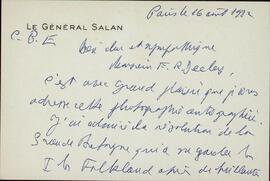 Paris le 16 août 1982
LE GÉNÉRAL SALAN
C. B. E
Bien cher et sympathique
Monsieur F. R.
C'est avec grand plaisir que je vous
adresse cette photographie autographiée.
J'ai admiré la résolution de la
Grande Bretagne qui a su garder les
Is Falkland après de brillants